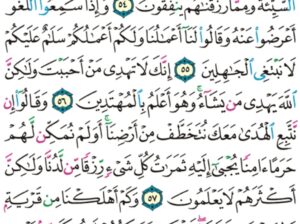 السَّيِّئَةَ وَمِمَّا رَزَقْنَٰهُمْ يُنفِقُونَ ٥٤ وَإِذَا سَمِعُوا۟ ٱللَّغْوَ
أَعْرَضُوا۟ عَنْهُ وَقَالُوا۟ لَنَآ أَعْمَٰلُنَا وَلَكُمْ أَعْمَٰلُكُمْ سَلَٰمٌ عَلَيْكُمْ
لَا نَبْتَغِى ٱلْجَٰهِلِينَ ٥٥ إِنَّكَ لَا تَهْدِى مَنْ أَحْبَبْتَ وَلَٰكِنَّ
ٱللَّهَ يَهْدِى مَن يَشَآءُ ۚ وَهُوَ أَعْلَمُ بِٱلْمُهْتَدِينَ ٥٦ وَقَالُوٓا۟ إِن
نَّتَّبِعِ ٱلْهُدَىٰ مَعَكَ نُتَخَطَّفْ مِنْ أَرْضِنَآ ۚ أَوَلَمْ نُمَكِّن لَّهُمْ
حَرَمًا ءَامِنًا يُجْبَىٰٓ إِلَيْهِ ثَمَرَٰتُ كُلِّ شَىْءٍ رِّزْقًا مِّن لَّدُنَّا وَلَٰكِنَّ
أَكْثَرَهُمْ لَا يَعْلَمُونَ ٥٧ وَكَمْ أَهْلَكْنَا مِن قَرْيَةٍۭ